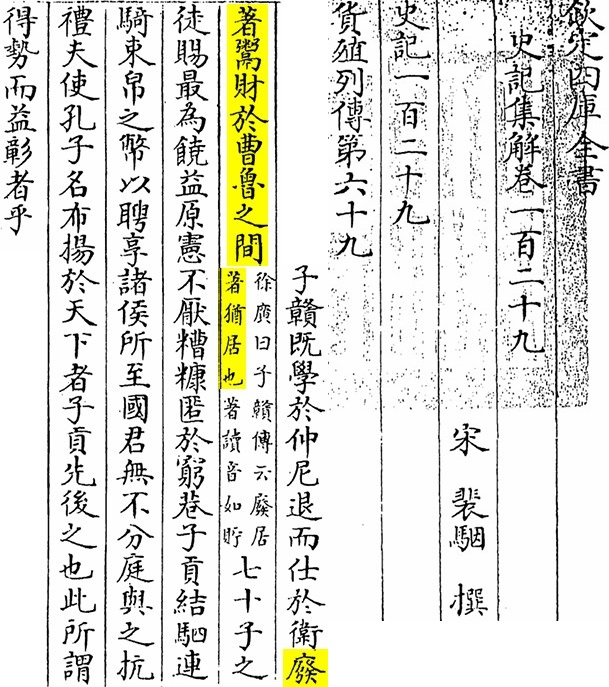 欽定四庫全書
史記集解卷一百二十九
宋 裴駰 撰
史記一百二十九
貨殖列傳第六十九
子贛既學於仲尼退而仕於衛廢
著鬻財於曹魯之間
徐廣曰子贛傳云廢居
著猶居也著讀音如貯
七十子之
徒賜最為饒益原憲不厭糟糠匿於窮巷子貢結駟連
騎束帛之幣以聘享諸侯所至國君無不分庭與之抗
禮夫使孔子名布揚於天下者子貢先後之也此所謂
得勢而益彰者乎